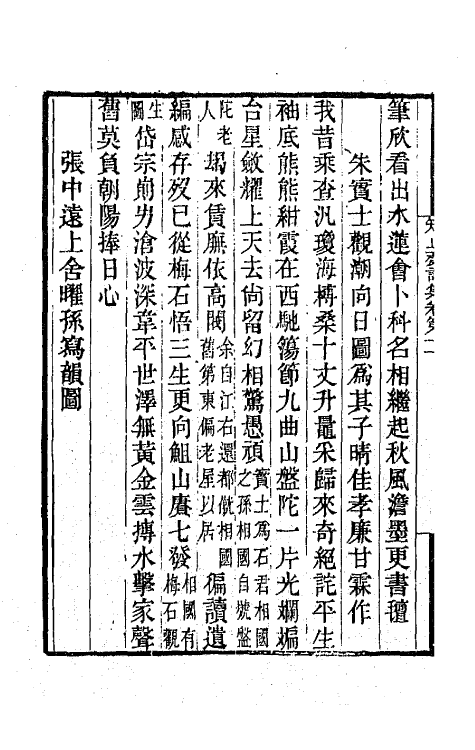 筆欣看出水蓮會卜科名相繼起秋風澹墨更書𥡴
朱賓士觀潮向日圖爲其子晴佳孝廉甘霖作
我昔乘查汎瓊海榑桑十丈升鼂采歸來奇絕詫平生
袖底熊熊紺霞在西馳蕩節九曲山盤陀一片光斕斒
台星斂耀上天去尙留幻相驚愚頑賓士爲石君相國之孫相國自號盤
陀老人朅來賃廡依高閎余自江右還都僦相國舊第東偏老屋以居徧讀遺
編感存歿已從梅石悟三生更向觛山賡七發相國有梅石觀
生圖岱宗嶄屴滄波深韋平世澤無黃金雲摶水擊家聲
舊莫負朝陽捧日心
張中遠上舍曜孫寫韻圖
知止齋詩集卷第十二